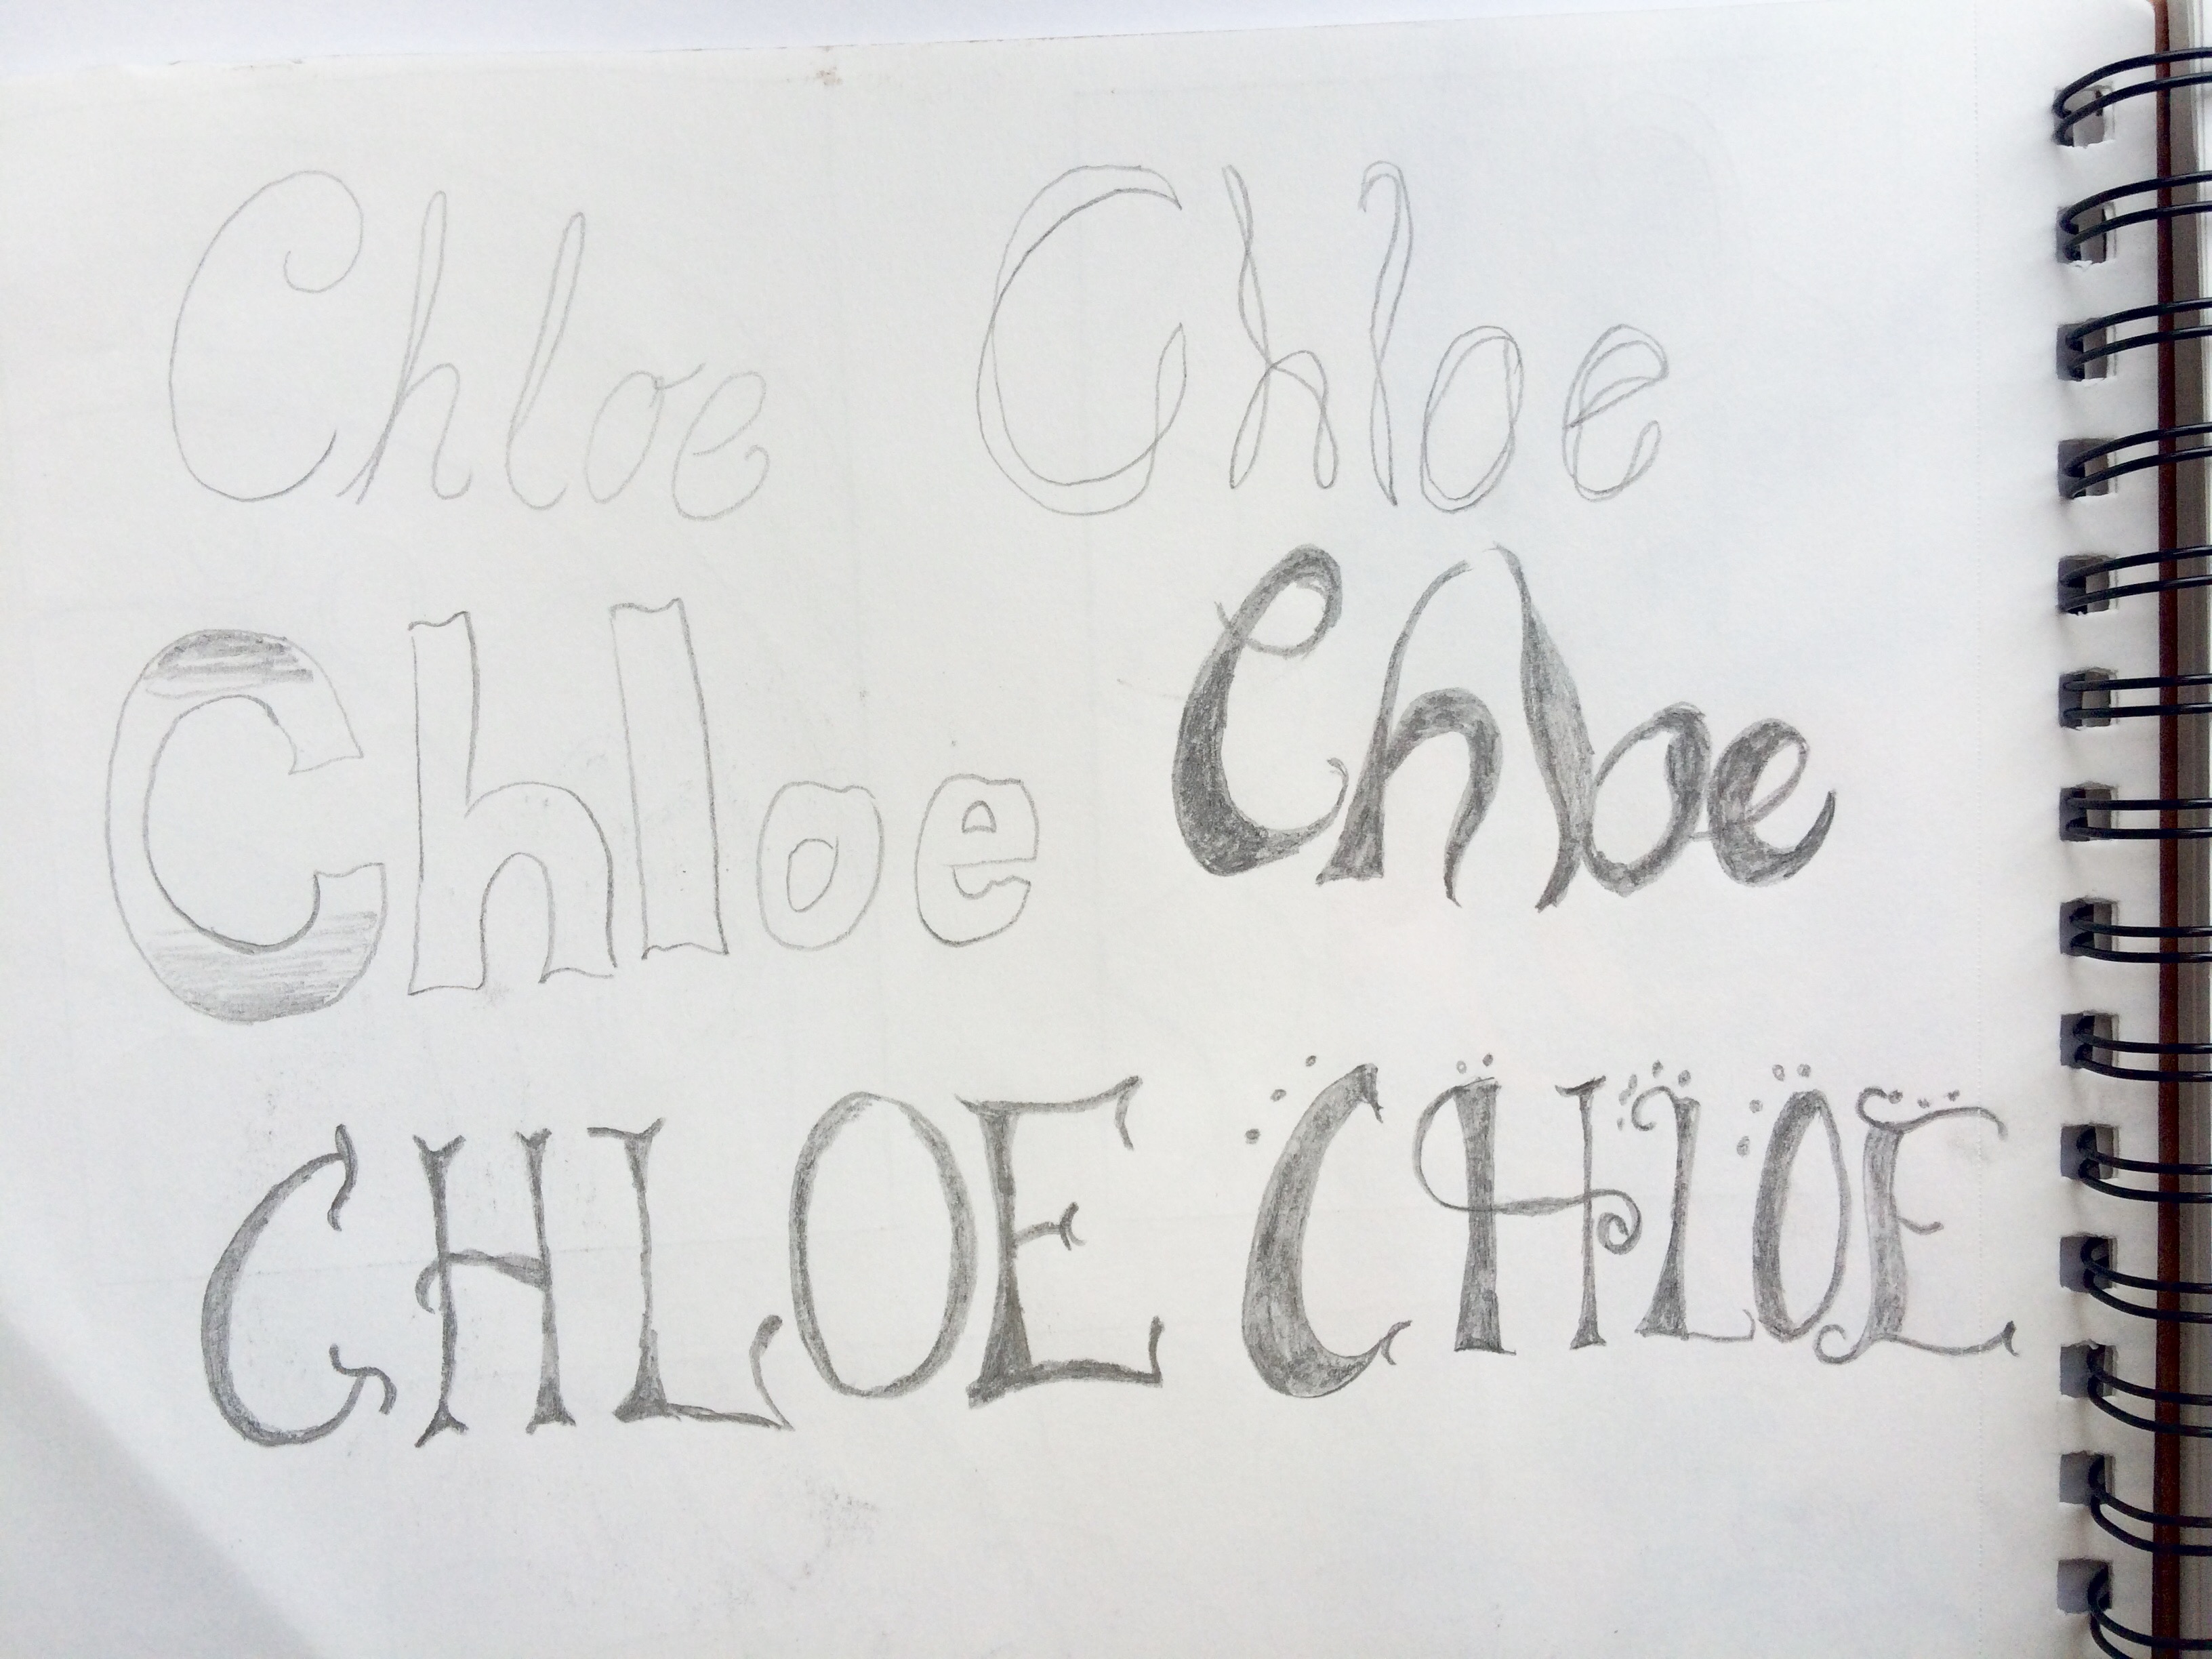 Chloe Chloe
Chloe Chloe
CHLOE CHLOE